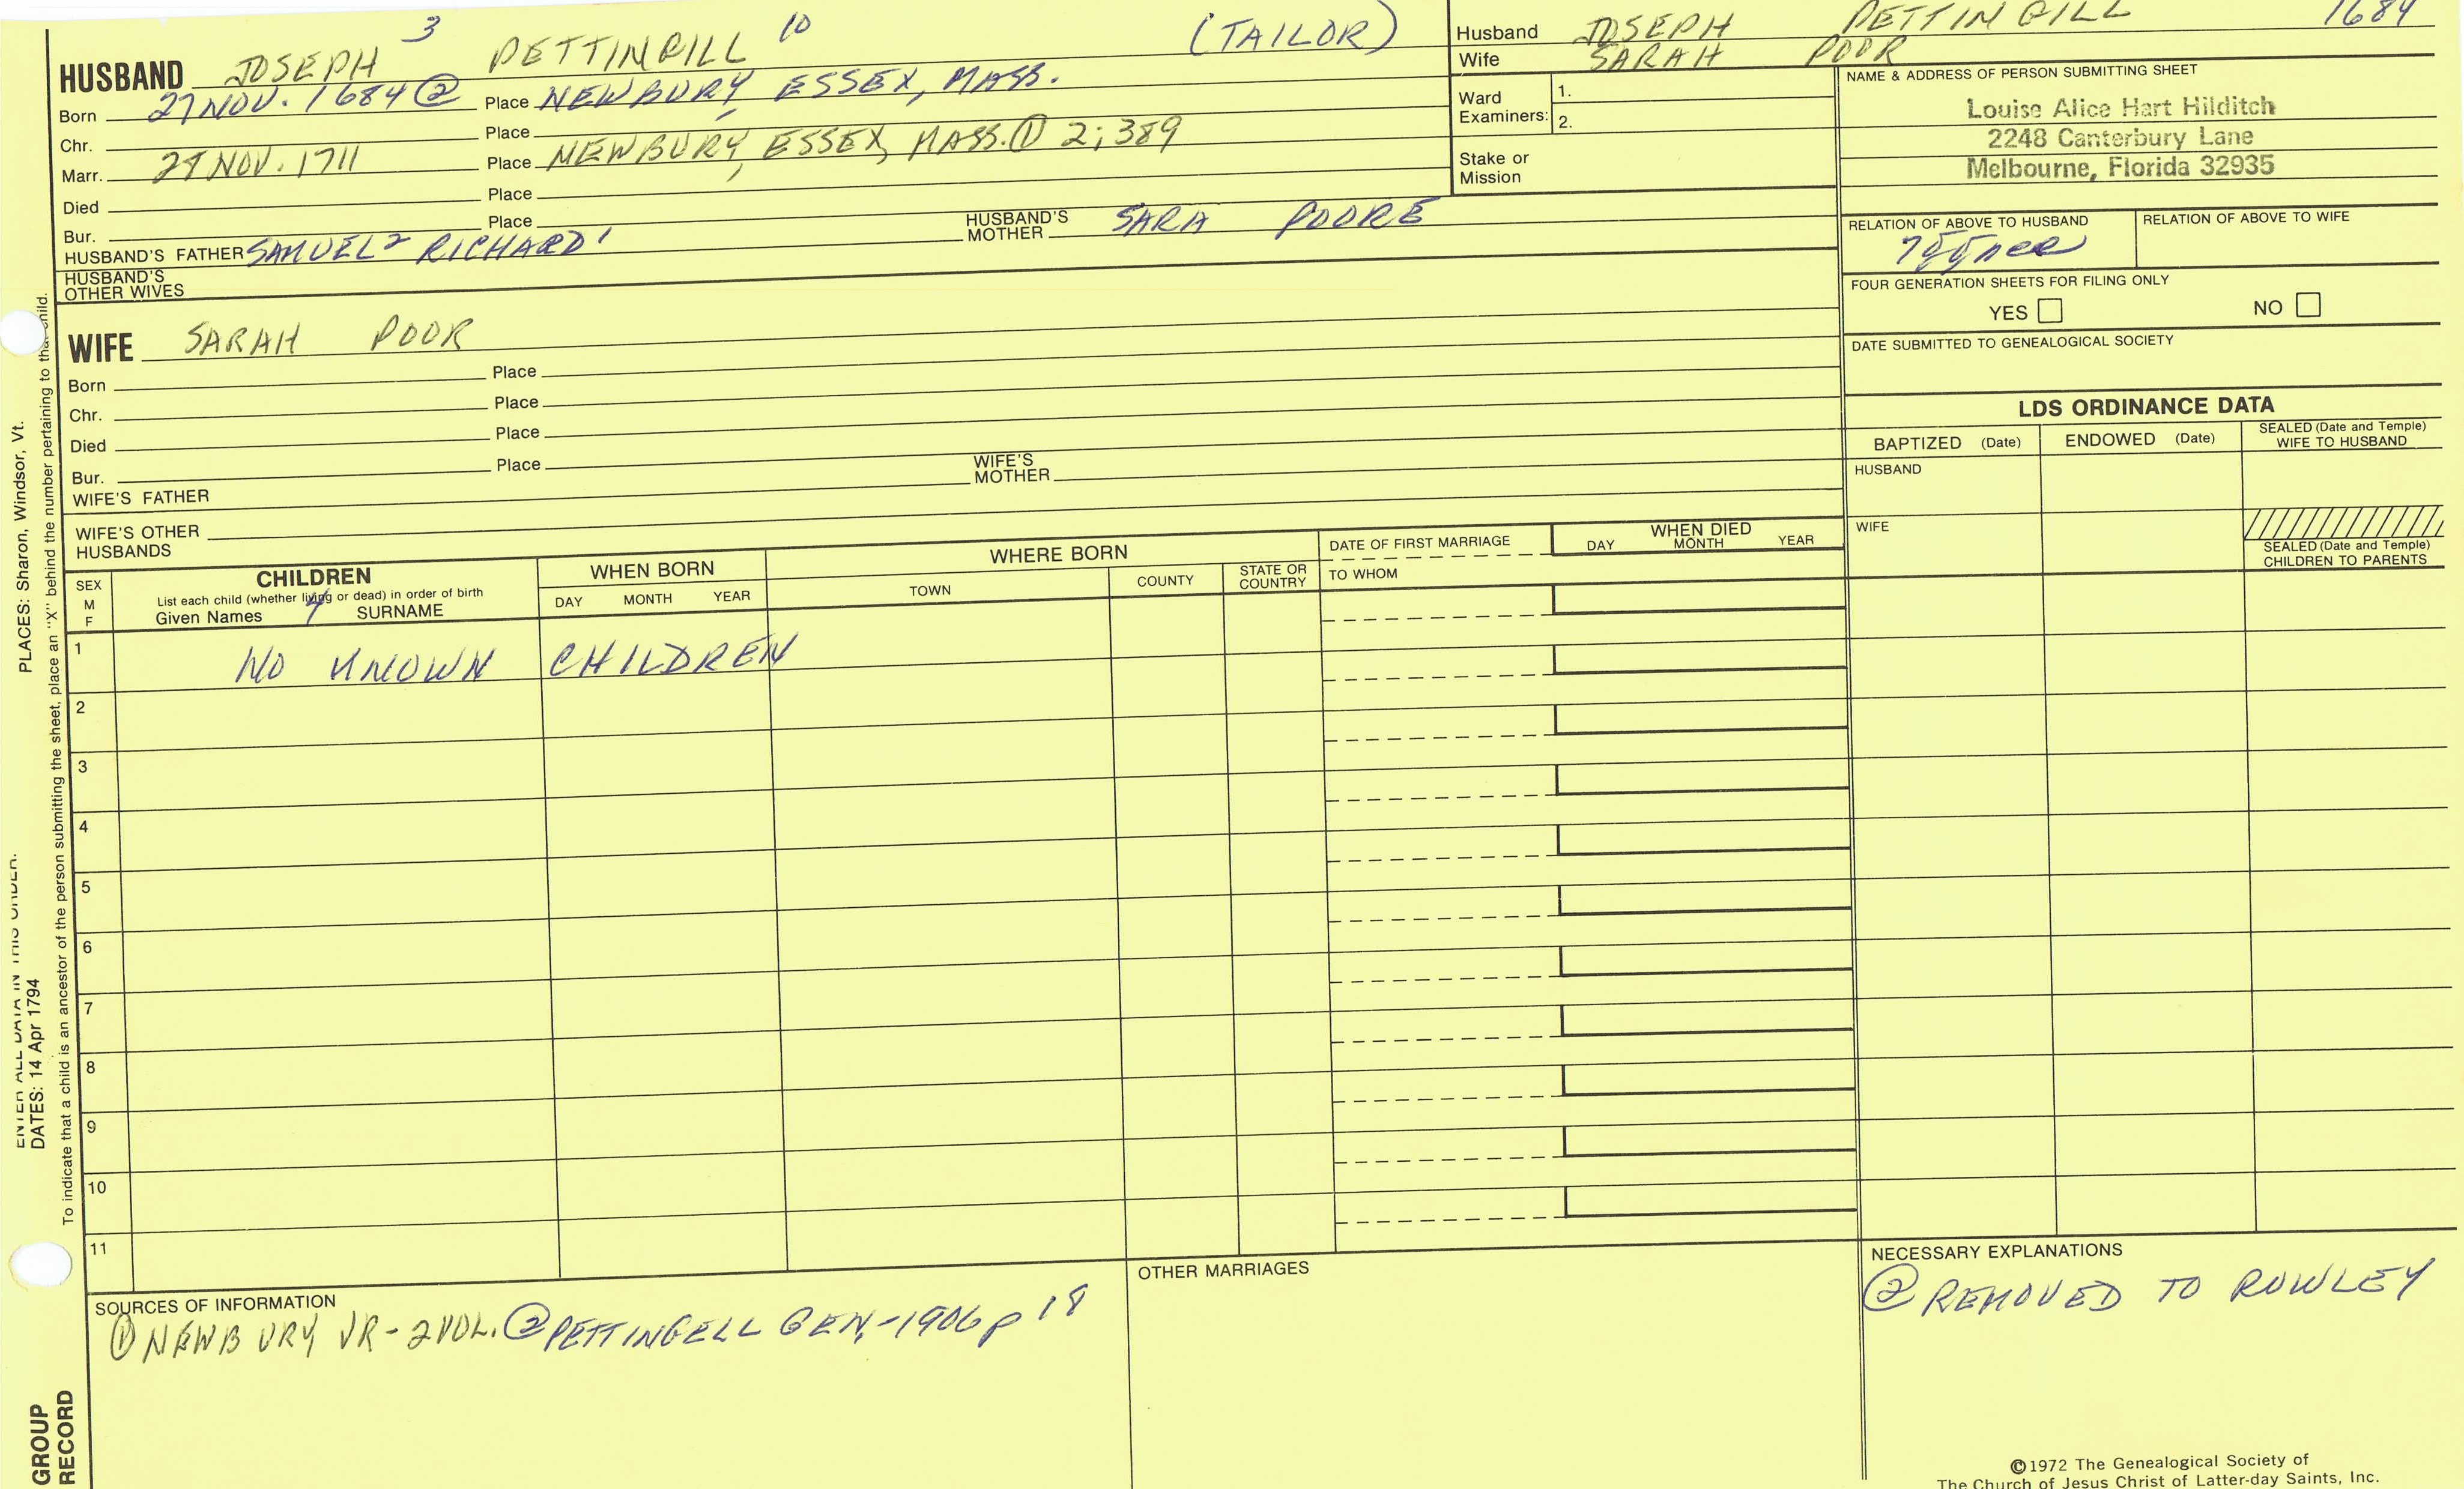 HUSBAND JOSEPH 3 PETTINGILL 10 (TAILOR)
Born 27 NOV. 1684 ② Place NEWBURY, ESSEX, MASS.
Chr. Place
Marr. 29 NOV. 1711 Place NEWBURY, ESSEX, MASS. ① 2; 389
Died Place
Bur. Place
HUSBAND'S FATHER SAMUEL 2 RICHARD 1 HUSBAND'S MOTHER SARA POORE
HUSBAND'S OTHER WIVES
WIFE SARAH POOR
Born Place
Chr. Place
Died Place
Bur. Place
WIFE'S FATHER WIFE'S MOTHER
WIFE'S OTHER HUSBANDS
Husband JOSEPH PETTINGILL 1684
Wife SARAH POOR
Ward Examiners: 1.
2.
Stake or Mission
NAME & ADDRESS OF PERSON SUBMITTING SHEET
Louise Alice Hart Hilditch
2248 Canterbury Lane
Melbourne, Florida 32935
RELATION OF ABOVE TO HUSBAND RELATION OF ABOVE TO WIFE
FOUR GENERATION SHEETS FOR FILING ONLY
YES NO
DATE SUBMITTED TO GENEALOGICAL SOCIETY
LDS ORDINANCE DATA
BAPTIZED (Date) ENDOWED (Date) SEALED (Date and Temple) WIFE TO HUSBAND
HUSBAND
WIFE
SEALED (Date and Temple) CHILDREN TO PARENTS
SEX M F
CHILDREN
List each child (whether living or dead) in order of birth
Given Names 4 SURNAME
WHEN BORN
DAY MONTH YEAR
WHERE BORN
TOWN COUNTY STATE OR COUNTRY
DATE OF FIRST MARRIAGE
TO WHOM
WHEN DIED
DAY MONTH YEAR
1 NO KNOWN CHILDREN
2
3
4
5
6
7
8
9
10
11
SOURCES OF INFORMATION
① NEWBURY VR - 2 VOL. ② PETTINGELL GEN,-1906 p 18
OTHER MARRIAGES
NECESSARY EXPLANATIONS
② REMOVED TO ROWLEY
©1972 The Genealogical Society of
The Church of Jesus Christ of Latter-day Saints, Inc.
ENTER ALL DATA IN THIS ORDER.
DATES: 14 Apr 1794
PLACES: Sharon, Windsor, Vt.
To indicate that a child is an ancestor of the person submitting the sheet, place an "X" behind the number pertaining to that child.
GROUP
RECORD